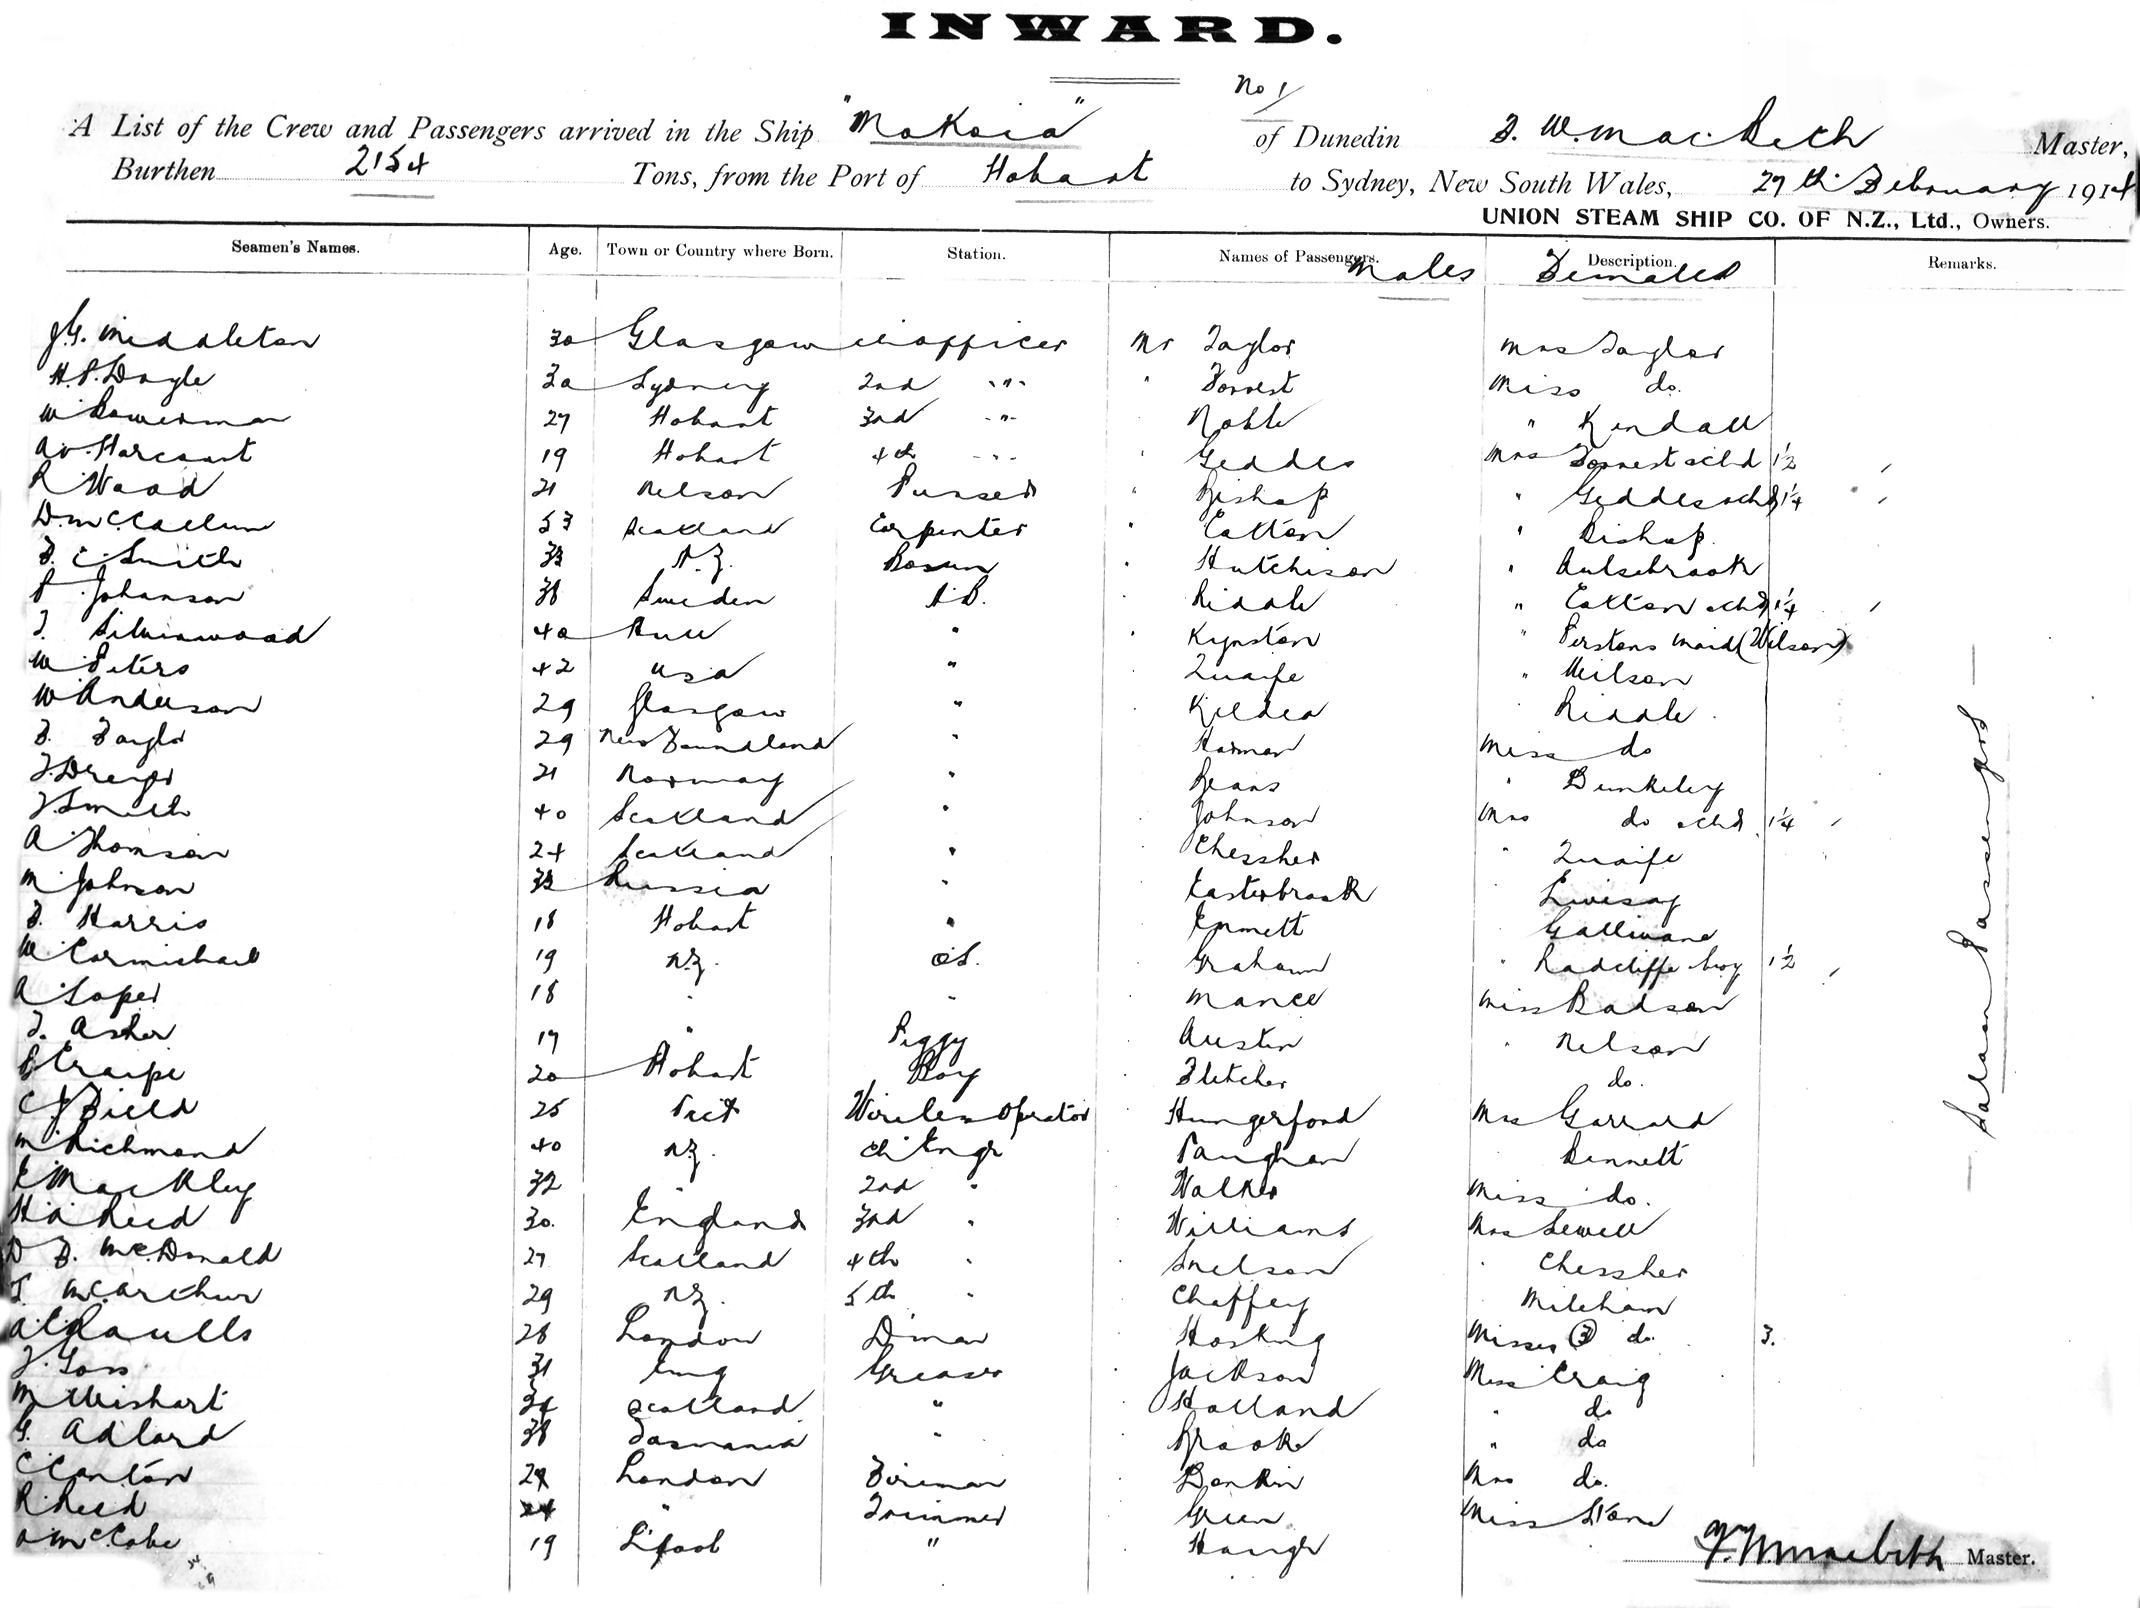 INWARD.
No 1/
A List of the Crew and Passengers arrived in the Ship "Mokoia" of Dunedin F. W. MacBeth Master,
Burthen 2154 Tons, from the Port of Hobart to Sydney, New South Wales, 27th February 1914
UNION STEAM SHIP CO. OF N.Z., Ltd., Owners.
Seamen's Names. Age. Town or Country where Born. Station. Names of Passengers. Description. Remarks.
Males Females
J.G. Middleton 30 Glasgow officer Mr Taylor Mrs Taylor
H.P. Doyle 30 Sydney 2nd " Forrest Miss do.
W Bowerman 27 Hobart 3rd " Noble " Kendall
Harcourt 19 Hobart 4th " Geddes Mrs Forrest & chd 1½
R Wood 21 Nelson Purser " Bishop " Geddes & chd 1¼
D. McCallum 53 Scotland Carpenter " Eatton " Bishop.
F. C Smith 33 N.Z. Bosun Hutchison " Aulsebrook
P Johanson 38 Sweden A.B. Riddle " Eatton & chd 1¼
T. Silverwood 40 Hull " Kynston " maid (Wilson)
W Peters 42 USA " Quaife " Wilson
W Anderson 29 Glasgow " Kildea Riddle
F. Taylor 29 New Foundland " Harman Miss do
21 Norway " Beans " Dunkeley
J. Smith 40 Scotland " Johnson Mrs do & chd 1¼
A Thomson 24 Scotland " Chessher " Quaife
M Johnson 33 Russia " Easterbrook Livisay
F. Harris 18 Hobart " Emmett Gallivane
W Carmichael 19 N.Z. O.S. Graham " Radcliffe & boy 1½
A Soper 18 " " Mance Miss Badson
T. Asher 17 " Peggy Austin " Nelson
20 Hobart Boy Fletcher do.
C J Field 25 Wireless Operator Hungerford Mrs Garrard
M Richmond 40 N.Z. Ch Engr Vaughan Bennett
E Mackley 32 " 2nd " Walker Miss do.
H A Reed 30. England 3rd " Williams Mrs Sewell
D F. McDonald 27 Scotland 4th " Snelson Chessher
T. McArthur 29 N.Z. 5th " Chaffey Mileham
28 London D'man Hosking Misses 3 do. 3.
J. Goss 31 Eng Greaser Jackson Miss Craig
M Wishart 34 Scotland " Holland " do
G. Adlard 38 Tasmania " Brooke " do
C Canton 27 London Fireman Mrs do.
R Reed 24 " Trimmer Green Miss Stone
McCabe 19 L'pool "
— Saloon Passengers —
F. W. Macbeth Master.